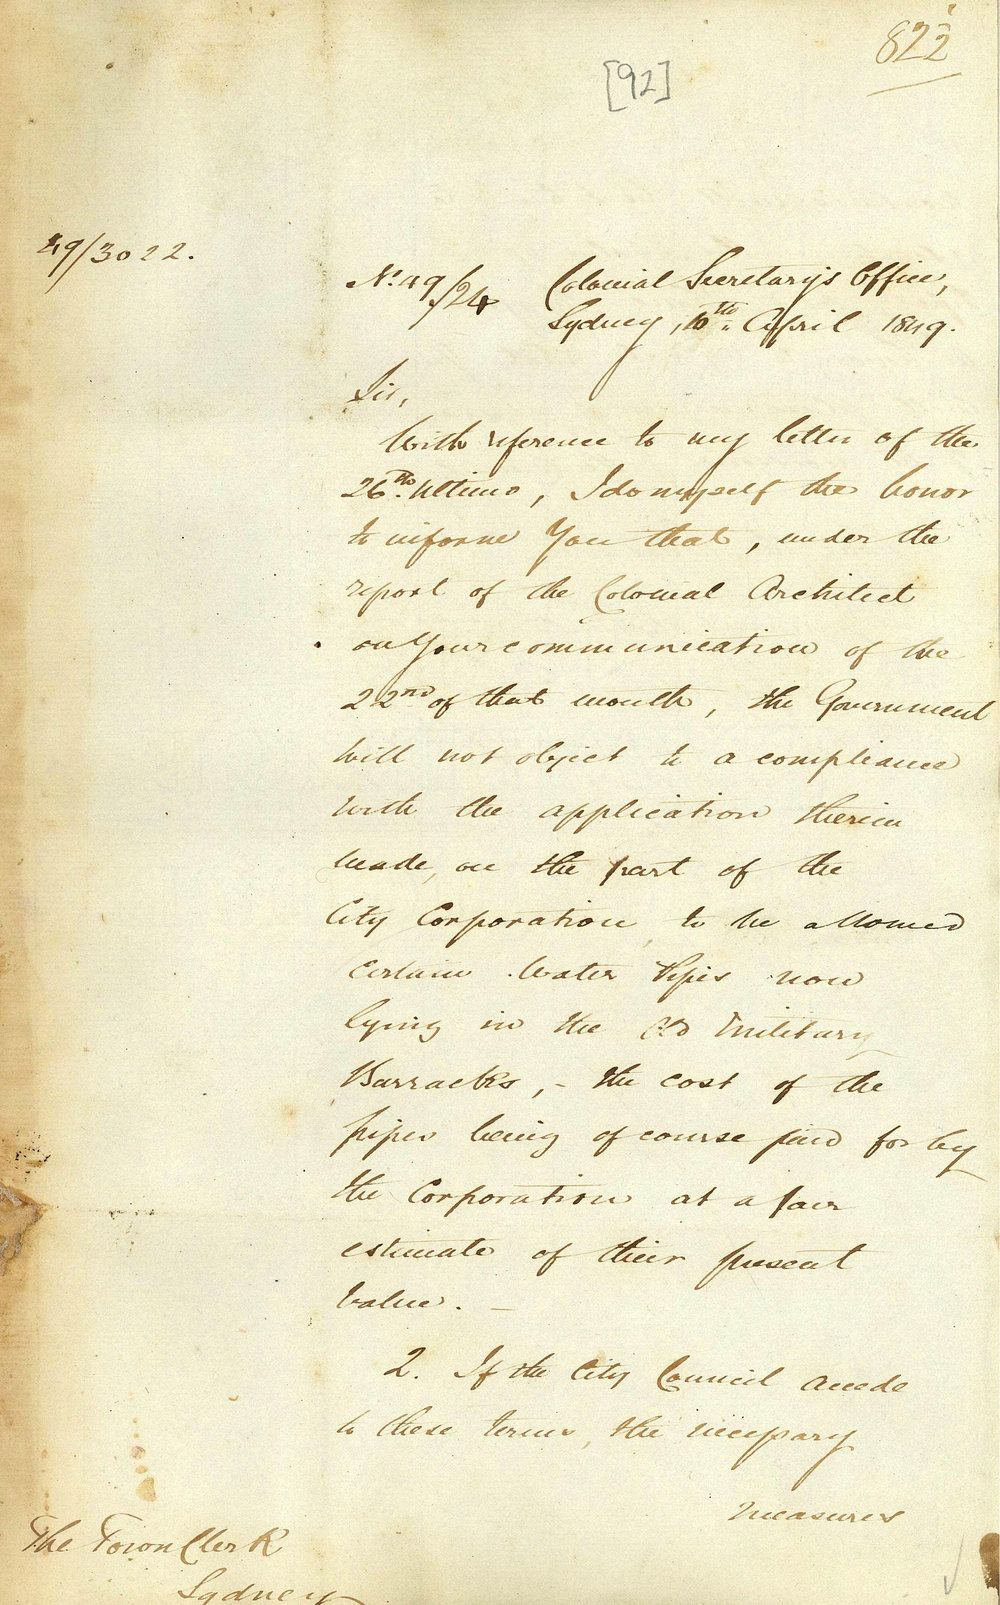 822
[92]
49/3022.
No. 49/24 Colonial Secretary's Office,
Sydney, 10th April 1849.
Sir,
With reference to my letter of the
26th Ultimo, I do myself the honor
to inform You that, under the
report of the Colonial Architect
on Your communication of the
22nd of that month, the Government
will not object to a compliance
with the application therein
made, on the part of the
City Corporation, to be allowed
certain Water Pipes now
lying in the Old Military
Barracks, - the cost of the
pipes being of course paid for by
the Corporation at a fair
estimate of their present
value. -
2. If the City Council accede
to these terms, the necessary
measures
The Town Clerk
Sydney